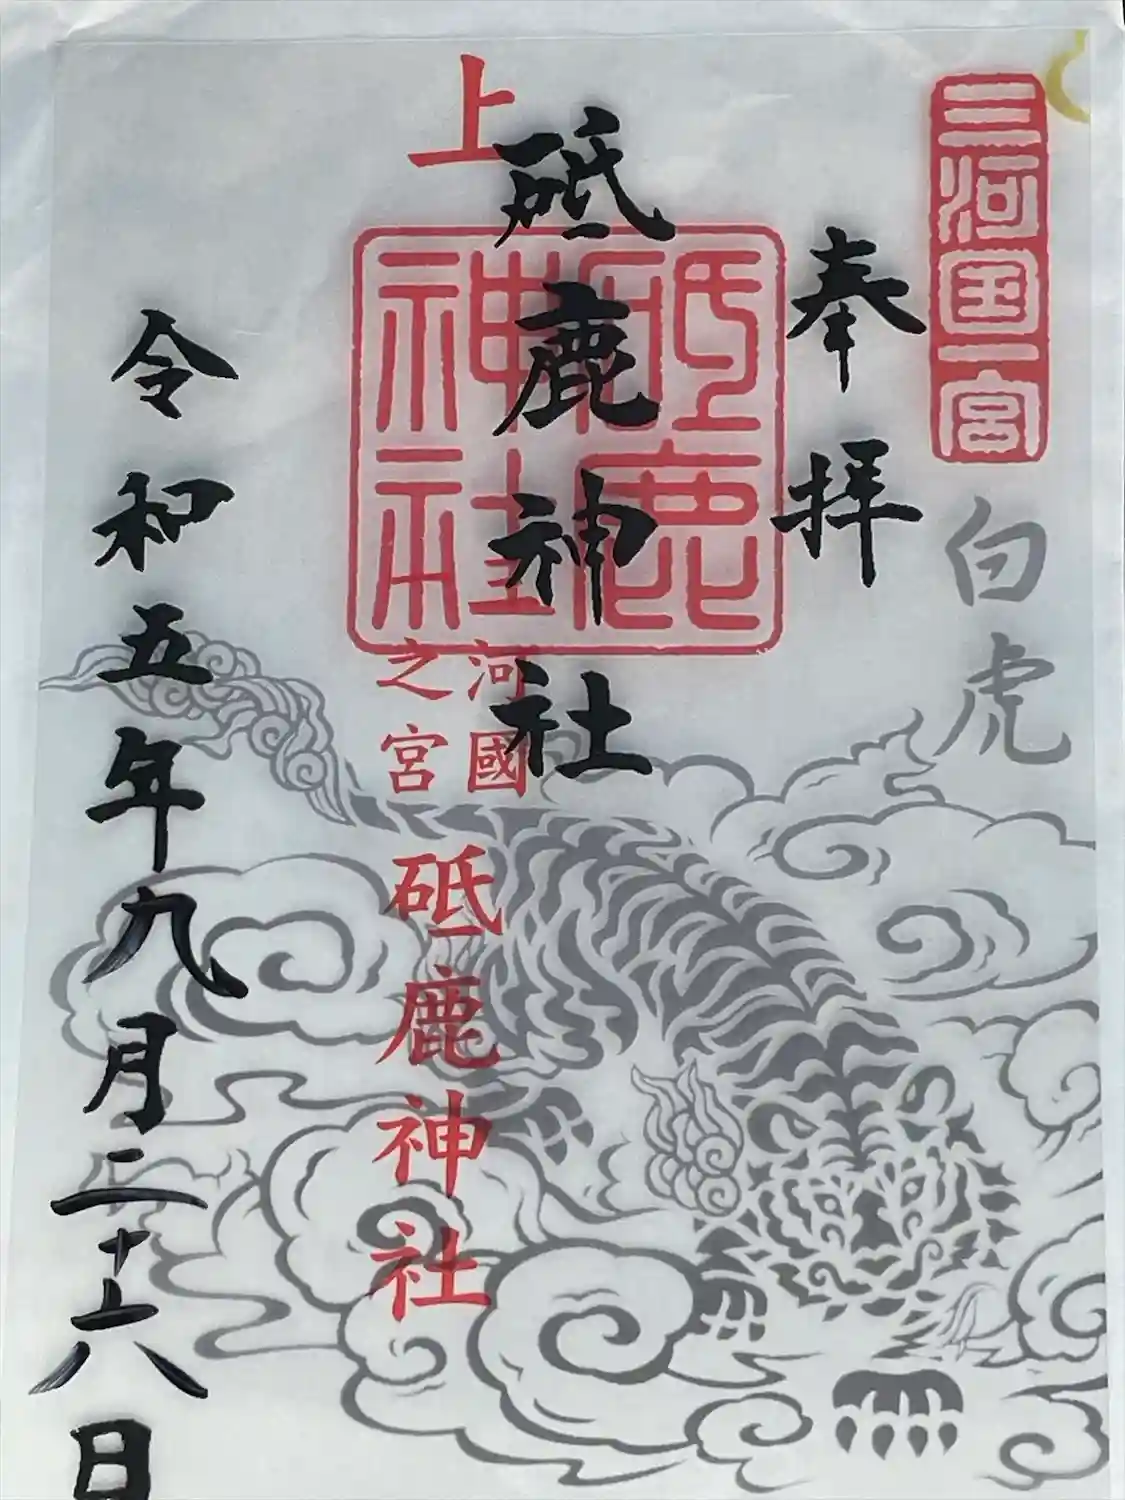 三河国一宮
白虎
奉拝
砥鹿神社
砥鹿神社
上
河國
之宮
砥鹿神社
令和五年九月二十六日